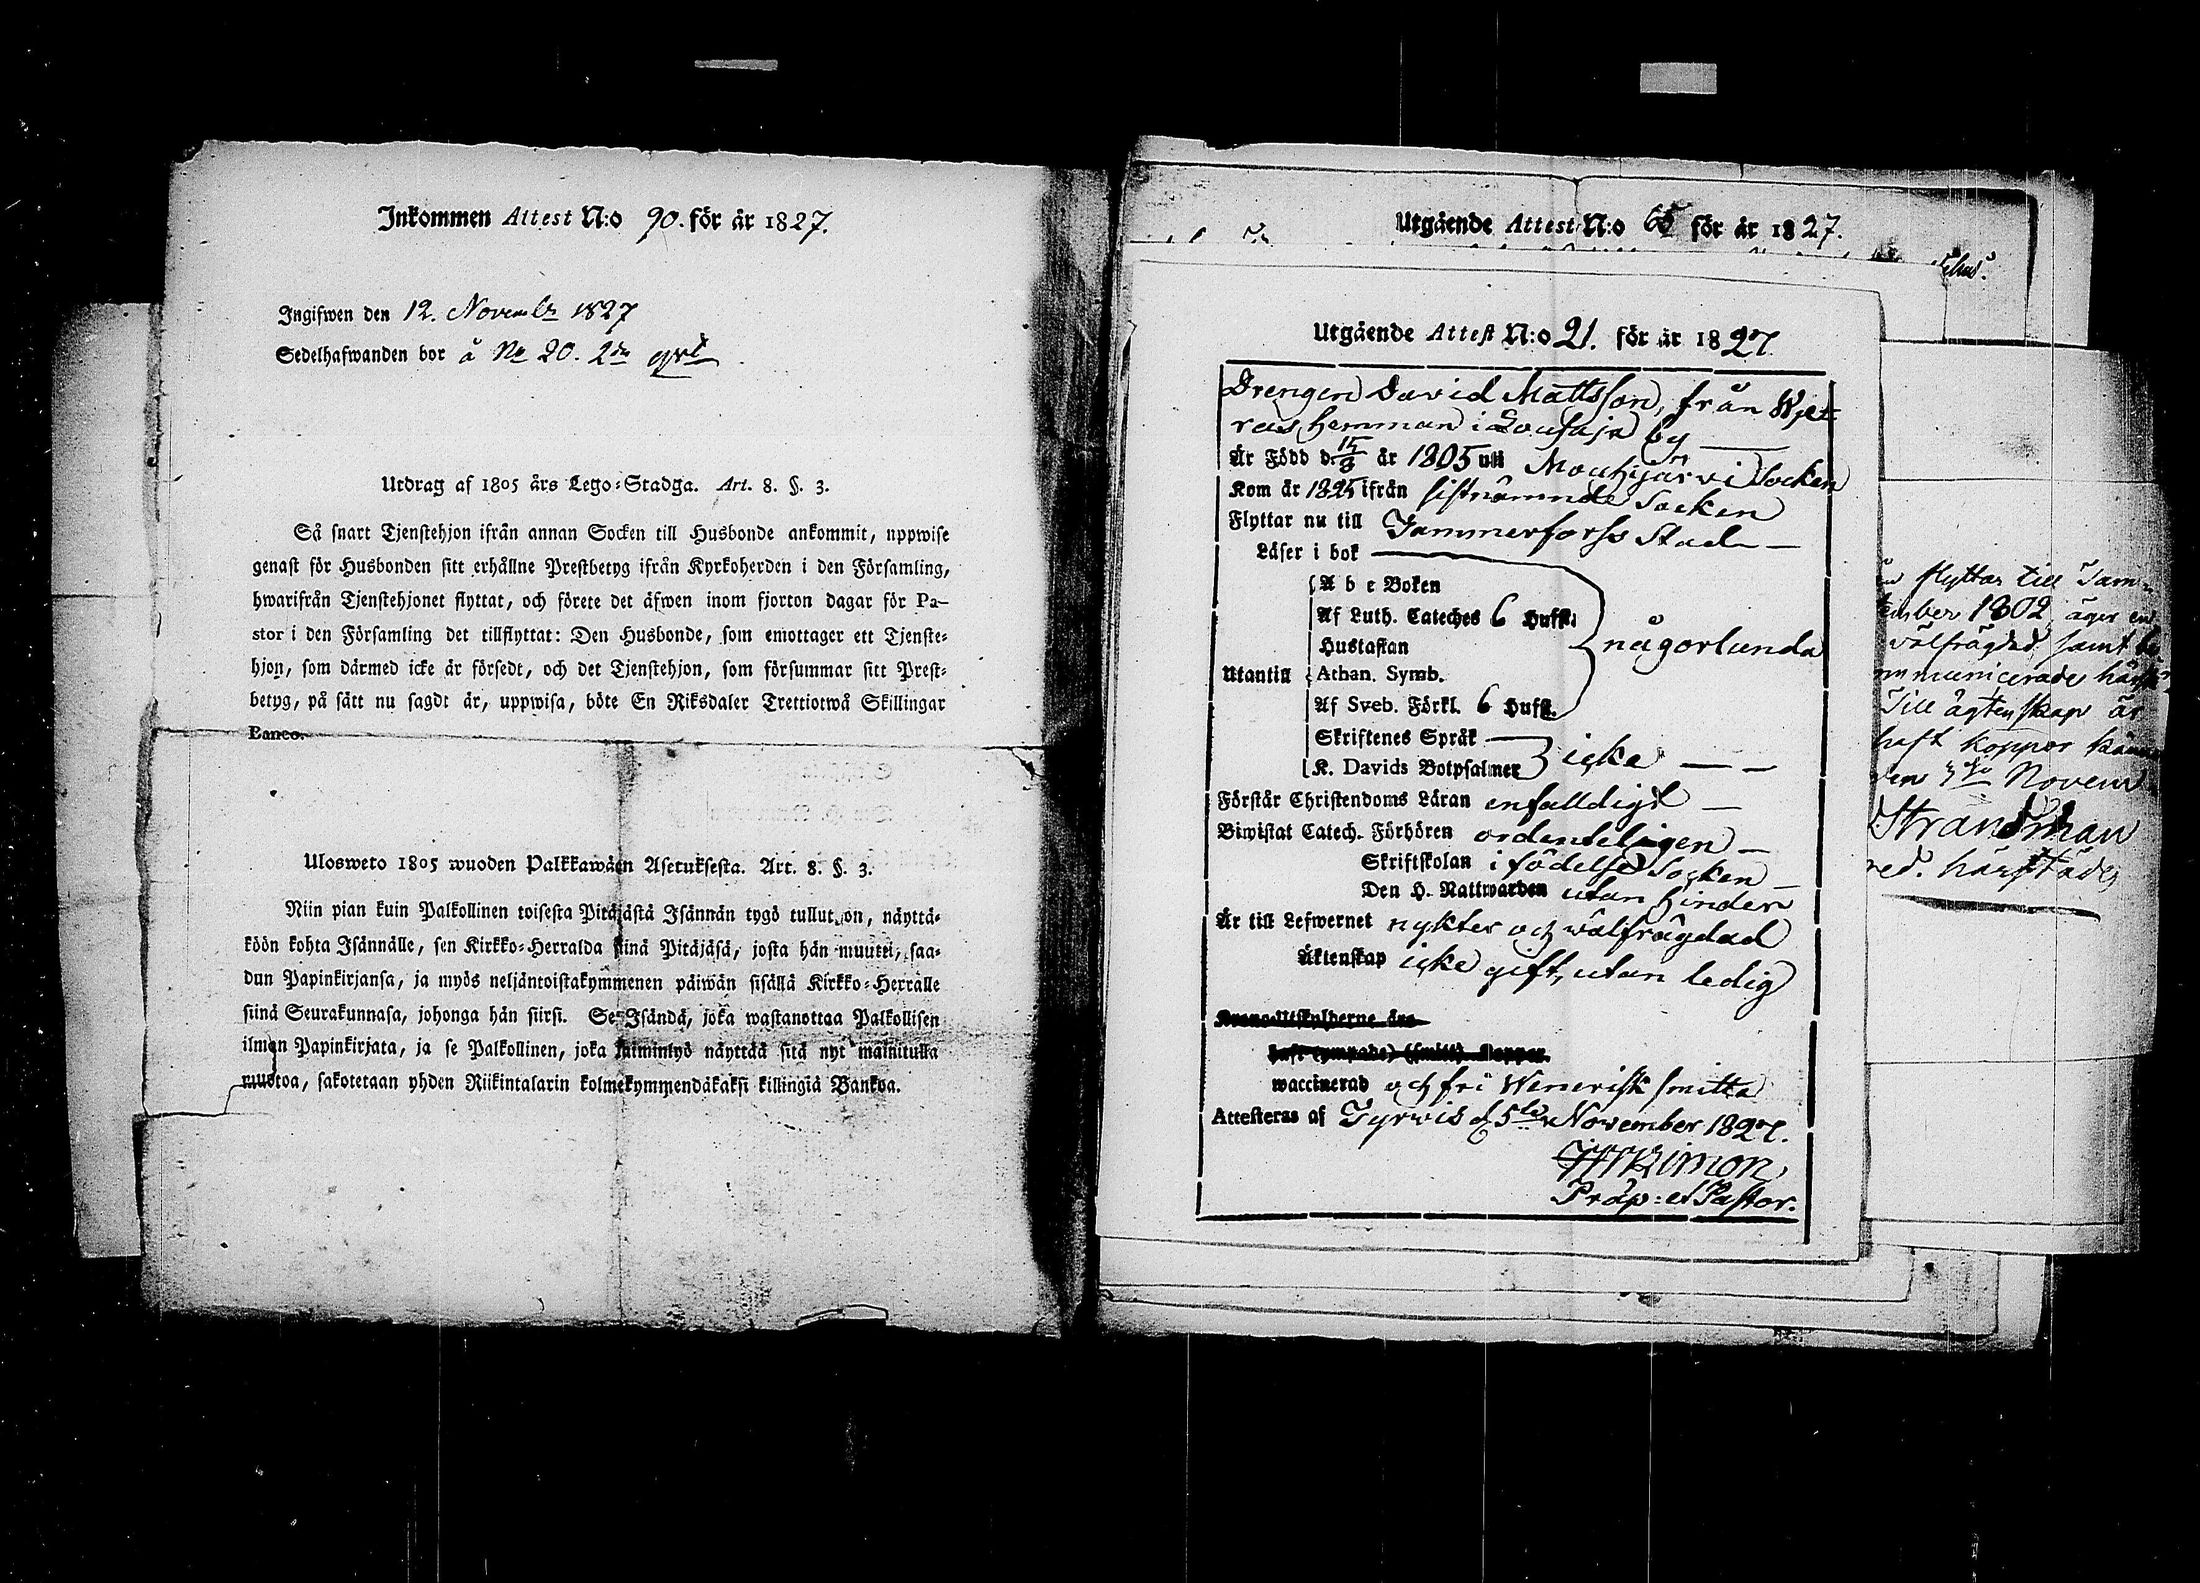 Inkommen Attest N:o 90. för år 1827.
Ingifwen den 12. Novembr 1827
Sedelhafwanden bor å No 20. 2dra qvrt
Utdrag af 1805 års Lego-Stadga. Art. 8. §. 3.
Så snart Tjenstehjon ifrån annan Socken till Husbonde ankommit, uppwise
genast för Husbonden sitt erhållne Prestbetyg ifrån Kyrkoherden i den Församling,
hwarifrån Tjenstehjonet flyttat, och förete det äfwen inom fjorton dagar för Pa-
stor i den Församling det tillflyttat: Den Husbonde, som emottager ett Tjenste-
hjon, som därmed icke är försedt, och det Tjenstehjon, som försummar sitt Prest-
betyg, på sätt nu sagdt är, uppwisa, böte En Riksdaler Trettiotwå Skillingar
Banco.
Ulosweto 1805 wuoden Palkkawäen Asetuksesta. Art. 8. §. 3.
Niin pian kuin Palkollinen toisesta Pitäjästä Isännän tygö tullut on, näyttä-
köön kohta Isännälle, sen Kirkko-Herralda siinä Pitäjäsä, josta hän muutti, saa-
dun Papinkirjansa, ja myös neljäntoistakymmenen päiwän sisällä Kirkko-Herralle
siinä Seurakunnasa, johonga hän siirsi. Se Isändä, joka wastanottaa Palkollisen
ilman Papinkirjata, ja se Palkollinen, joka laimintyö näyttää sitä nyt mainitulla
muotoa, sakotetaan yhden Riikintalarin kolmekymmendäkaksi killingiä Bankoa.
Utgående Attest N:o 65 för år 1827.
Utgående Attest N:o 21. för år 1827
Drengen David Mattsson, från
ras hemman i by
Är Född d. 15/3 år 1805 uti Mouhijärvi Socken
Kom år 1825 ifrån sistnämnde Socken
Flyttar nu till Tammerforss Stad
Läser i bok
A b c Boken
Af Luth. Cateches 6 Hufst.
Hustaflan någorlunda
Utantill Athan. Symb.
Af Sveb. Förkl. 6 Hufst.
Skriftenes Språk
K. Davids Botpsalmer icke
Förstår Christendoms Läran enfalldigt
Biwistat Catech. Förhören ordenteligen
Skriftskolan i födelse Socken
Den H. Nattwarden utan hinder
Är till Lefwernet nykter och wälfrägdad
Äktenskap icke gift, utan ledig
waccinerad och fri Wenerisk smitta
Attesteras af Tyrwis d. 5te November 1827.
Prap: et Pastor.
flyttar till Tam-
tember 1802, äger en
välfrägdad samt be-
mmunicerade härst
Till ägtenskap är
haft koppor
den 3dje Novem
Strandman
red. härstädes